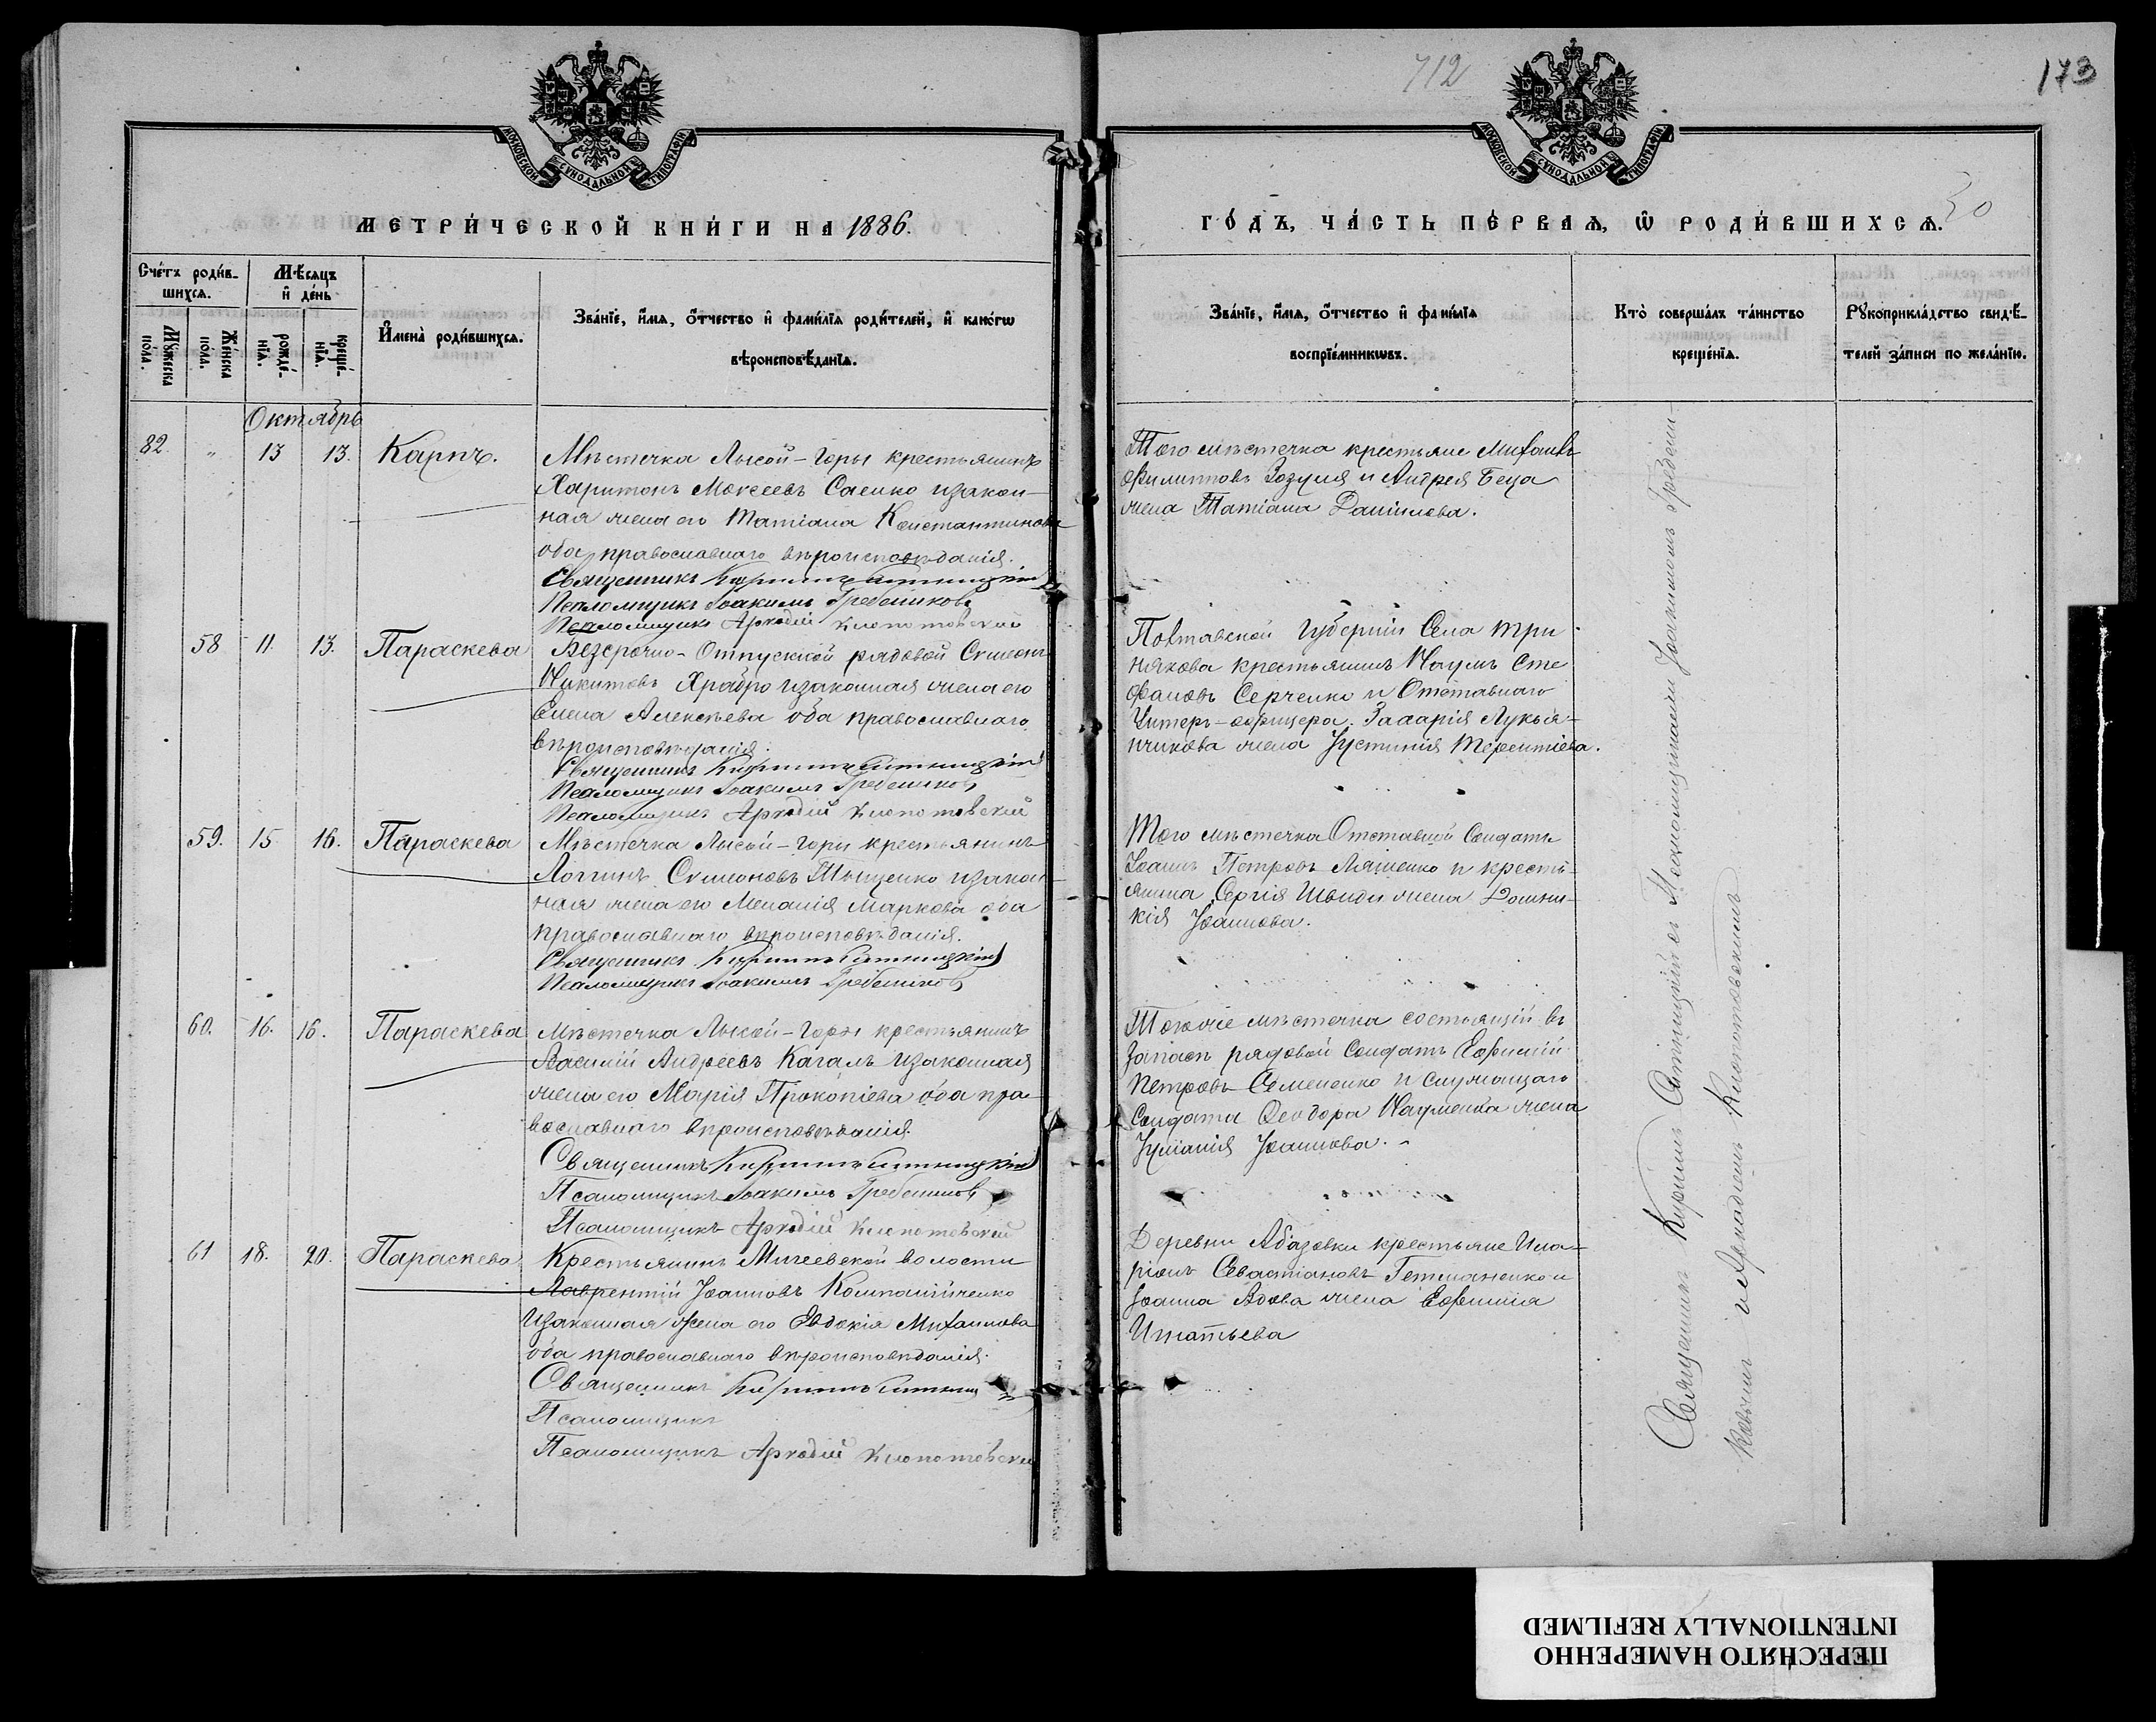 712
173
30
МОСКОВСКОЙ СѴНОДАЛЬНОЙ ТИПОГРАФІИ
МОСКОВСКОЙ СѴНОДАЛЬНОЙ ТИПОГРАФІИ
МЕТРИ́ЧЕСКОЙ КНИ́ГИ НА 1886.
ГО́ДЪ, ЧА́СТЬ ПЕ́РВАЯ, Ѽ РОДИ́ВШИХСЯ.
Сче́тъ роди́в-
шихся.
Мѣ́сяцъ
и҆ де́нь
Мꙋ́жеска
пола.
Же́нска
по́ла.
рожде́-
нїя.
креще́-
нїя.
И҆мена̀ роди́вшихся.
Зва́нїе, и҆́мя, ѻ҆́тчество и҆ фами́лїѧ роди́телей, и҆ како́гѡ
вѣроисповѣ́данїѧ.
Зва́нїе, и҆́мя, ѻ҆́тчество и҆ фами́лїѧ
воспрїе́мникѡвъ.
Кто̀ соверша́лъ та́инство
креще́нїѧ.
Рꙋкоприкла́дство свидѣ́-
телей за́писи по жела́нїю.
Октябрь
82. " 13 13. Карпъ.
Мѣстечка Лысой-Горы крестьянинъ
Харитонъ Моксеевъ Саенко изакон-
ная жена его Татіана Константинова
оба православнаго вѣроисповѣданія.
Священникъ Кириллъ Ситницкій
Псаломщикъ Іоакимъ Гребенниковъ
Псаломщикъ Аркадій Клопотовскій
Того мѣстечка крестьяне Михаилъ
Филипповъ Зозуля и Андрея Беца
жена Татіана Даніилова.
58 11. 13. Параскева
Безсрочно-Отпускной рядовой Симеонъ
Никитовъ Храбро изаконная жена его
Елена Алексѣева оба православнаго
вѣроисповѣданія.
Священникъ Кириллъ Ситницкій
Псаломщикъ Іоакимъ Гребенниковъ
Псаломщикъ Аркадій Клопотовскій
Полтавской Губерніи Села Три
някова крестьянинъ Наумъ Сте
фановъ Серченко и Отставнаго
Унтеръ-офицера Захарія Лукья-
нчикова жена Іустинія Терентіева.
59. 15 16. Параскева
Мѣстечка Лысой-Горы крестьянинъ
Логгинъ Симеоновъ Тыщенко изакон-
ная жена его Меланія Маркова оба
православнаго вѣроисповѣданія.
Священникъ Кириллъ Ситницкій
Псаломщикъ Іоакимъ Гребенниковъ
Того мѣстечка Отставной Солдатъ
Іоаннъ Петровъ Ляшенко и кресть-
янина Сергія Швиды жена Домни-
кія Іоаннова.
60. 16. 16. Параскева
Мѣстечка Лысой-Горы крестьянинъ
Василій Андреевъ Кагалъ изаконная
жена его Марія Прокопіева оба пра-
вославнаго вѣроисповѣданія.
Священникъ Кириллъ Ситницкій
Псаломщикъ Іоакимъ Гребенниковъ
Псаломщикъ Аркадій Клопотовскій
Того же мѣстечка состоящій въ
запасѣ рядовой Солдатъ Евфимій
Петровъ Семененко и служащаго
Солдата Ѳеодора Науменка жена
Іуліанія Іоаннова.
61 18. 20. Параскева
Крестьянинъ Мигеевской волости
Лаврентій Іоанновъ Компанійченко
Изаконная жена его Евдокія Михаилова
оба православнаго вѣроисповѣданія.
Священникъ Кириллъ Ситницкій
Псаломщикъ
Псаломщикъ Аркадій Клопотовскій
Деревни Абазовки крестьяне Ила-
ріонъ Севастіановъ Гетманенко и
Іоанна Адова жена Евфимія
Игнатьева
Священникъ Кириллъ Ситницкій съ Псаломщиками Іоакимомъ Гребенни-
ковымъ и Аркадіемъ Клопотовскимъ
ПЕРЕСНЯТО НАМЕРЕННО
INTENTIONALLY REFILMED